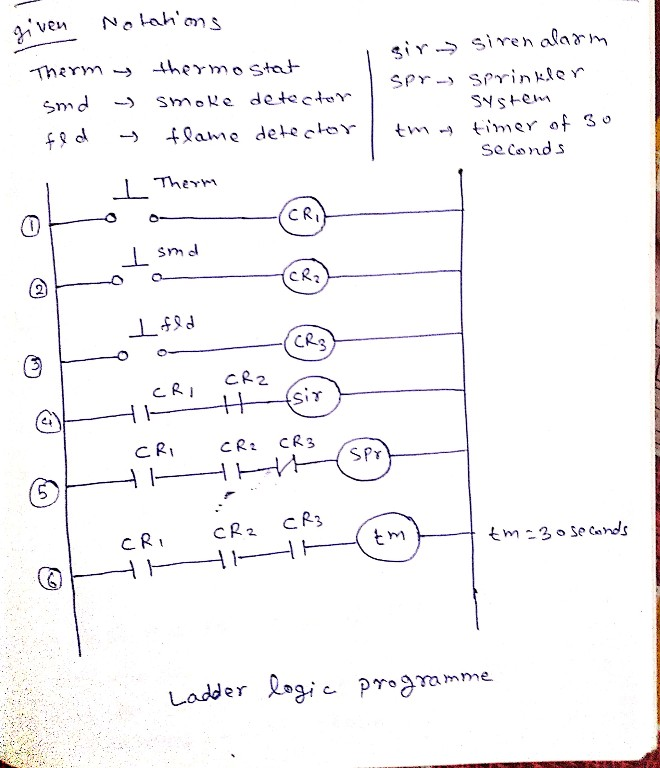 given Notations
Therm → thermostat
smd → smoke detector
fld → flame detector
sir → siren alarm
spr → sprinkler
system
tm → timer of 30
seconds
Therm
1 CR1
smd
2 CR2
fld
3 CR3
CR1 CR2
4 sir
CR1 CR2 CR3
5 SPr
CR1 CR2 CR3
6 tm tm = 30 seconds
Ladder logic programme